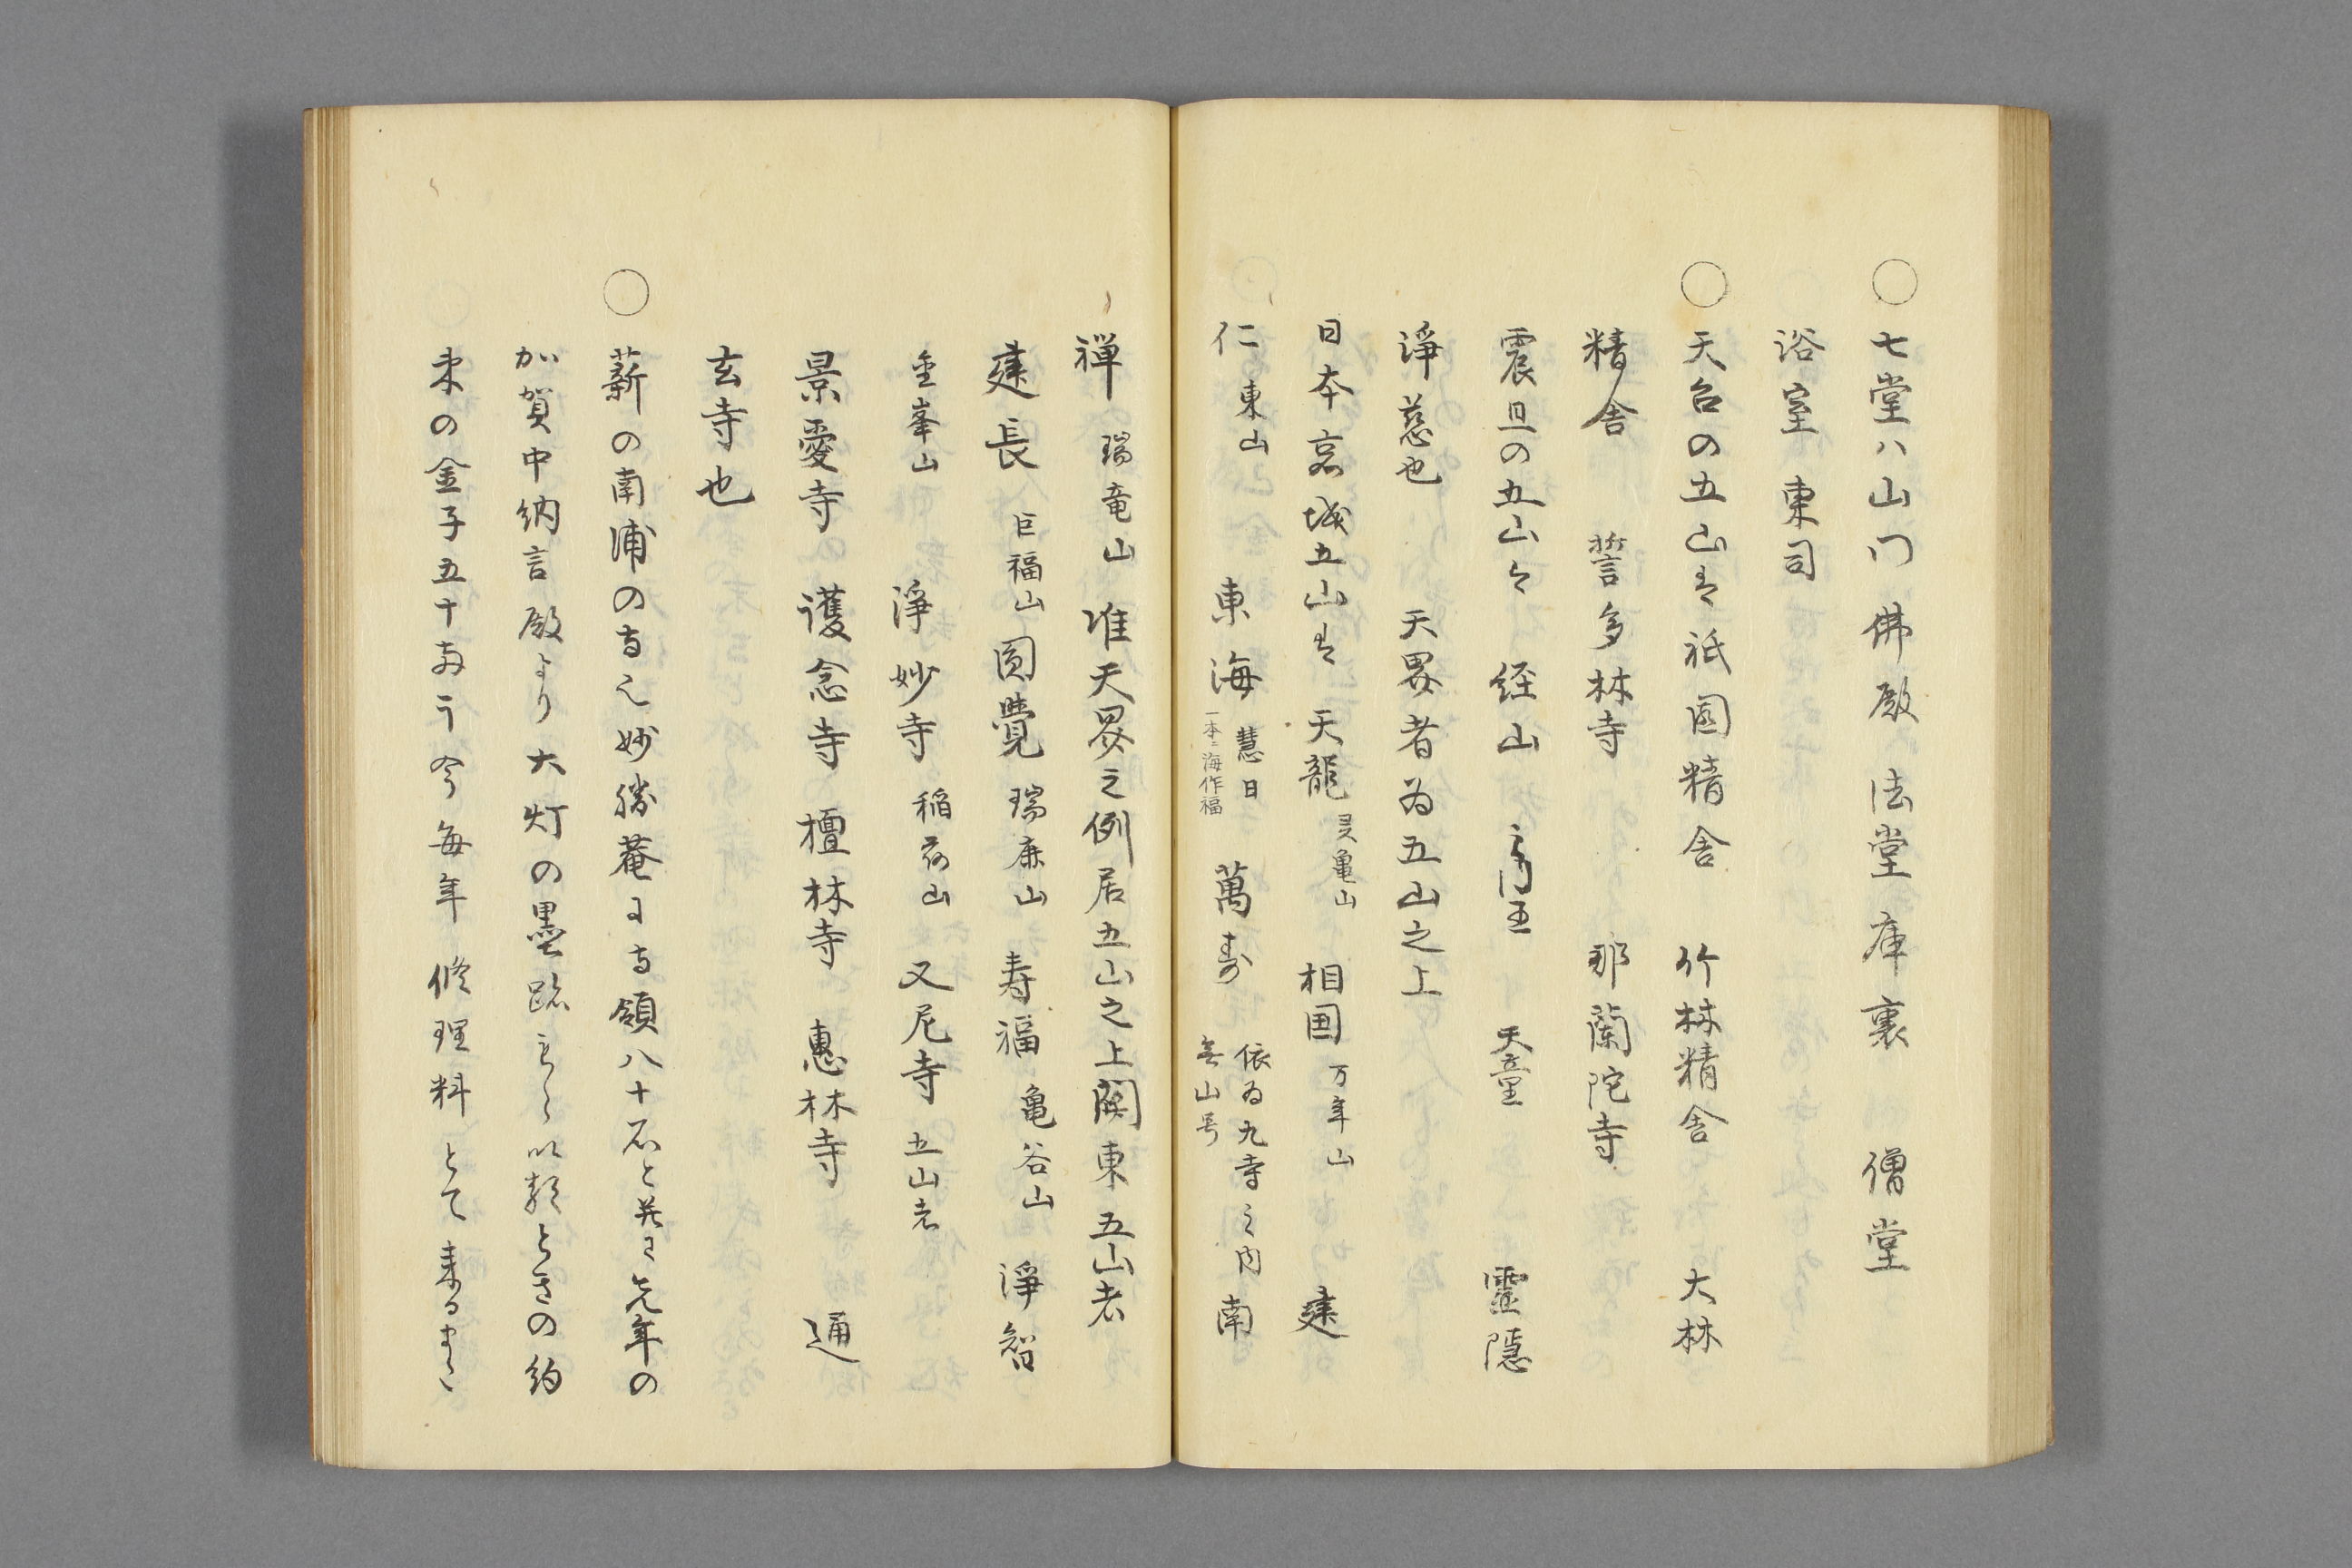 ○七堂ハ山门 佛殿 法堂 庫裏 僧堂
浴室 東司
○天台の五山は 祇園精舎 竹林精舎 大林
精舎 誓多林寺 那蘭陀寺
震旦の五山ハ 経山 育王 天童 霊隠
浄慈也 天界者為五山之上
日本京城五山は 天龍 灵亀山 相国 万年山 建
仁 東山 東海 慧日 一本ニ海作福 萬寿 依為九寺之内無山号 南
禅 瑞竜山 准天界之例居五山之上関東五山者
建長 巨福山 圓覺 瑞鹿山 寿福 亀谷山 淨智
金峯山 淨妙寺 稲荷山 又尼寺五山者
景愛寺 護念寺 檀林寺 惠林寺 通
玄寺也
○薪の南浦の寺を妙勝菴に寺領八十石と并に先年の
加賀中納言殿より大灯の墨跡 以頼ときの約
束の金子五十両 今毎年修理料とて来る